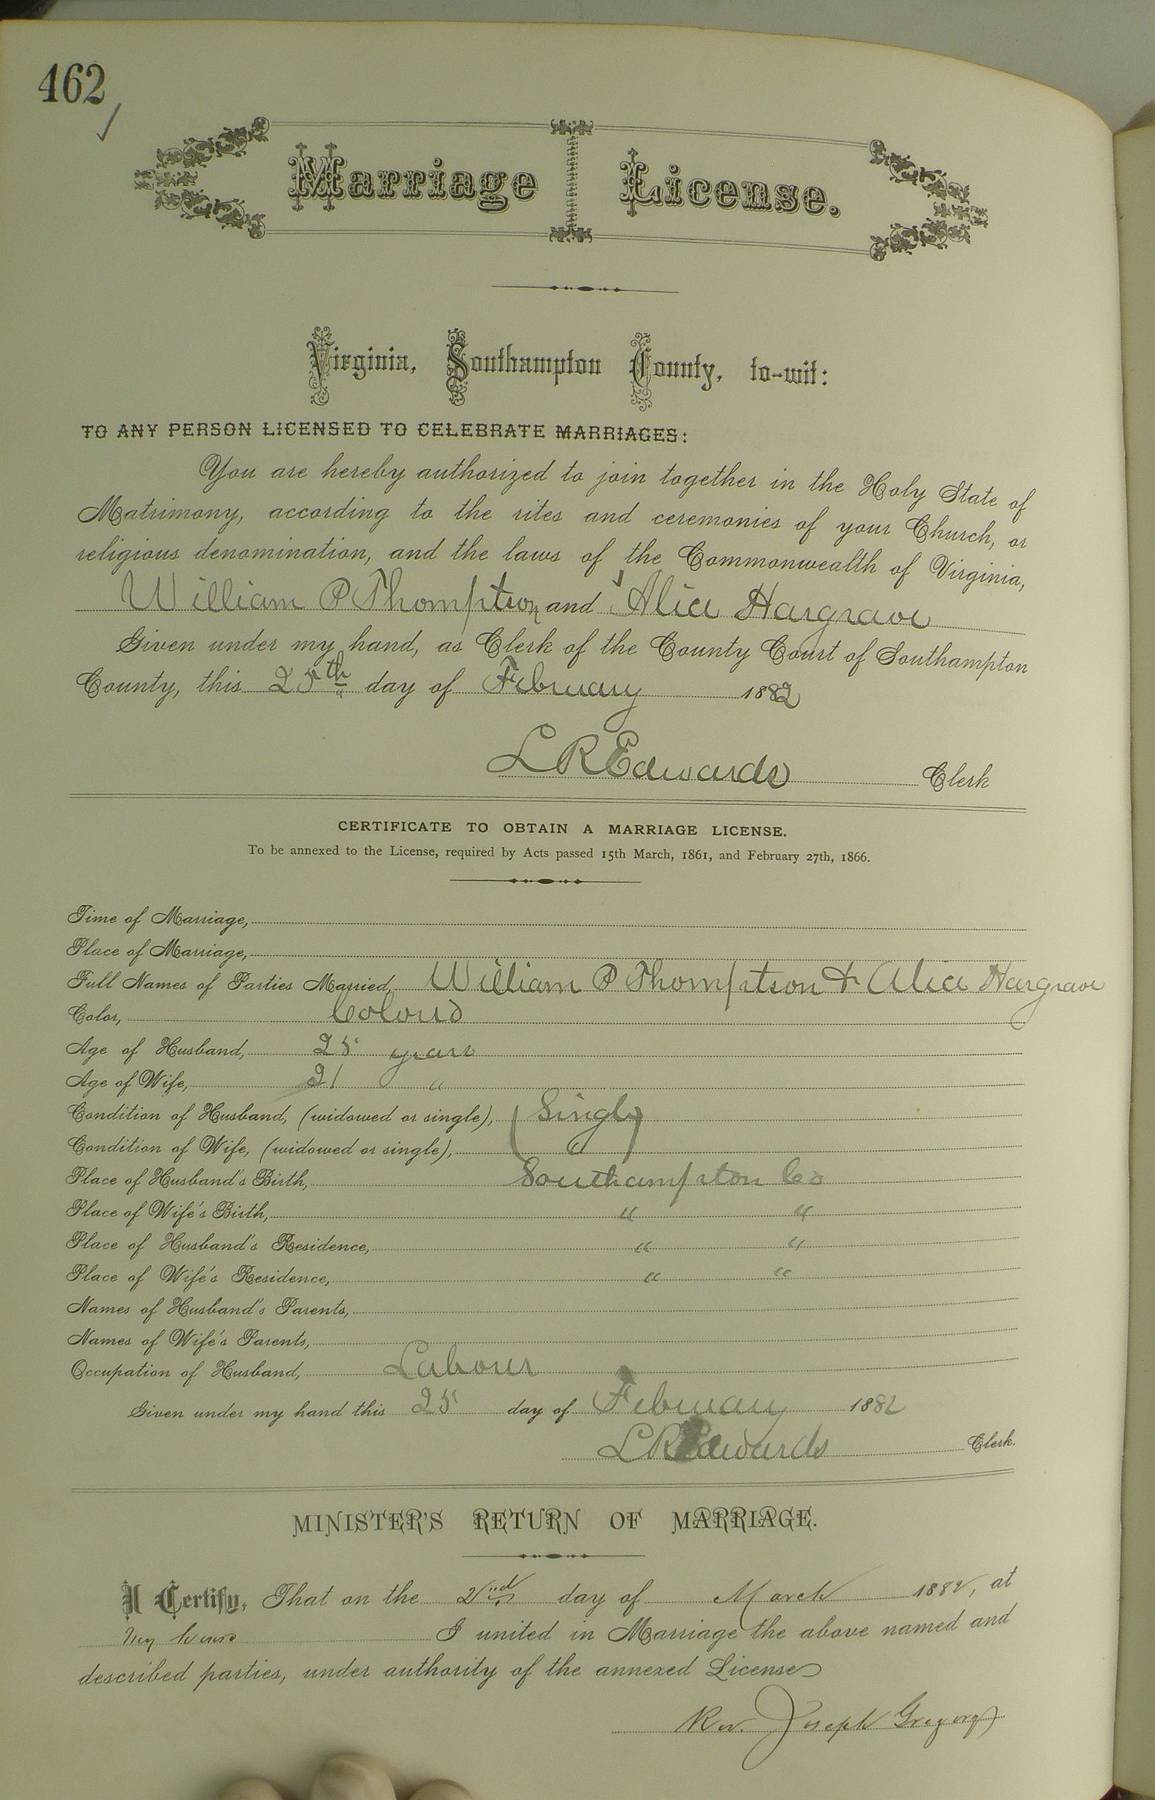 462
Marriage License.
Virginia, Southampton County, to-wit:
TO ANY PERSON LICENSED TO CELEBRATE MARRIAGES:
You are hereby authorized to join together in the Holy State of
Matrimony, according to the rites and ceremonies of your Church, or
religious denomination, and the laws of the Commonwealth of Virginia,
William P Thompson and Alice Hargrave
Given under my hand, as Clerk of the County Court of Southampton
County, this 25th day of February 1882
L R Edwards Clerk
CERTIFICATE TO OBTAIN A MARRIAGE LICENSE.
To be annexed to the License, required by Acts passed 15th March, 1861, and February 27th, 1866.
Time of Marriage,
Place of Marriage,
Full Names of Parties Married, William P Thompson & Alice Hargrave
Color, Colord
Age of Husband, 25 years
Age of Wife, 21 "
Condition of Husband, (widowed or single), (Single)
Condition of Wife, (widowed or single),
Place of Husband's Birth, Southampton Co
Place of Wife's Birth, " "
Place of Husband's Residence, " "
Place of Wife's Residence, " "
Names of Husband's Parents,
Names of Wife's Parents,
Occupation of Husband, Labour
Given under my hand this 25 day of February 1882
L R Edwards Clerk.
MINISTER'S RETURN OF MARRIAGE.
I Certify, That on the 2nd day of March 1882, at
my house I united in Marriage the above named and
described parties, under authority of the annexed License
Rev. Joseph Gregory